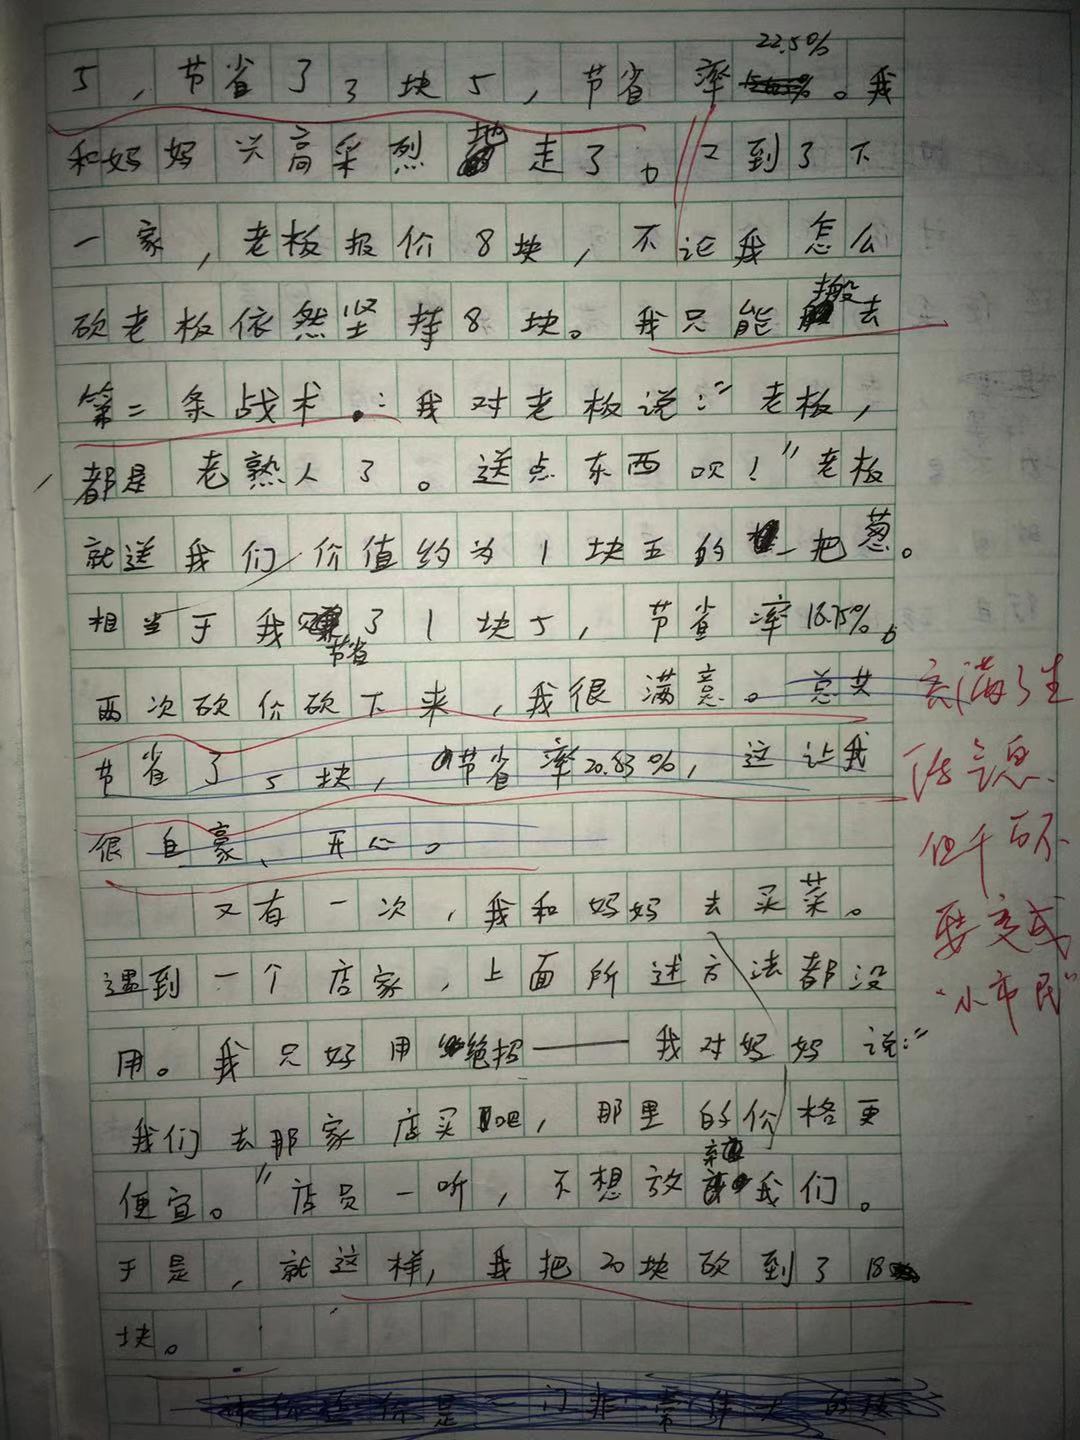 22.5%
5，节省了3块5，节省率。我
和妈妈兴高采烈地走了。又到了下
一家，老板报价8块，不论我怎么
砍老板依然坚持8块。我只能搬去
第二条战术。：我对老板说：“老板，
都是老熟人了。送点东西呗！”老板
就送我们价值约为1块五的一把葱。
相当于我节省了1块5，节省率18.75%。
两次砍价砍下来，我很满意。总共
节省了5块，节省率20.83%，这让我
很自豪、开心。
又有一次，我和妈妈去买菜。
遇到一个店家，上面所述方法都没
用。我只好用绝招——我对妈妈说：“
我们去那家店买吧，那里的价格更
便宜。”店员一听，不想放我们。
于是，就这样，我把20块砍到了18
块。
充满了生
活气息.
但千万不
要变成
“小市民”